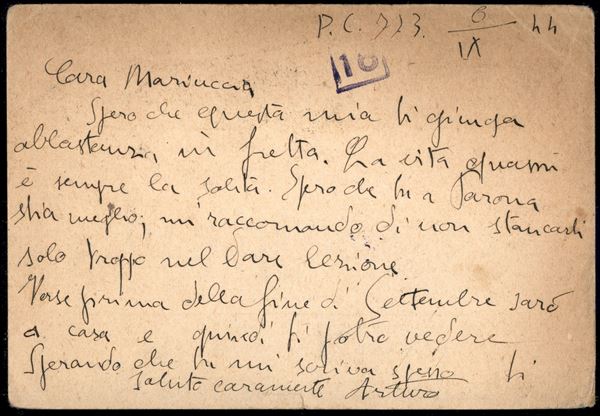 P.C. 713 6/IX 44
16
Cara Mariuccia
Spero che questa mia ti giunga
abbastanza in fretta. La vita quassù
è sempre la solita. Spero che tu a Parona
stia meglio; mi raccomando di non stancarti
solo troppo nel dare lezione
Forse prima della fine di Settembre sarò
a casa e quindi ti potrò vedere
Sperando che tu mi scriva spesso ti
saluto caramente Arturo